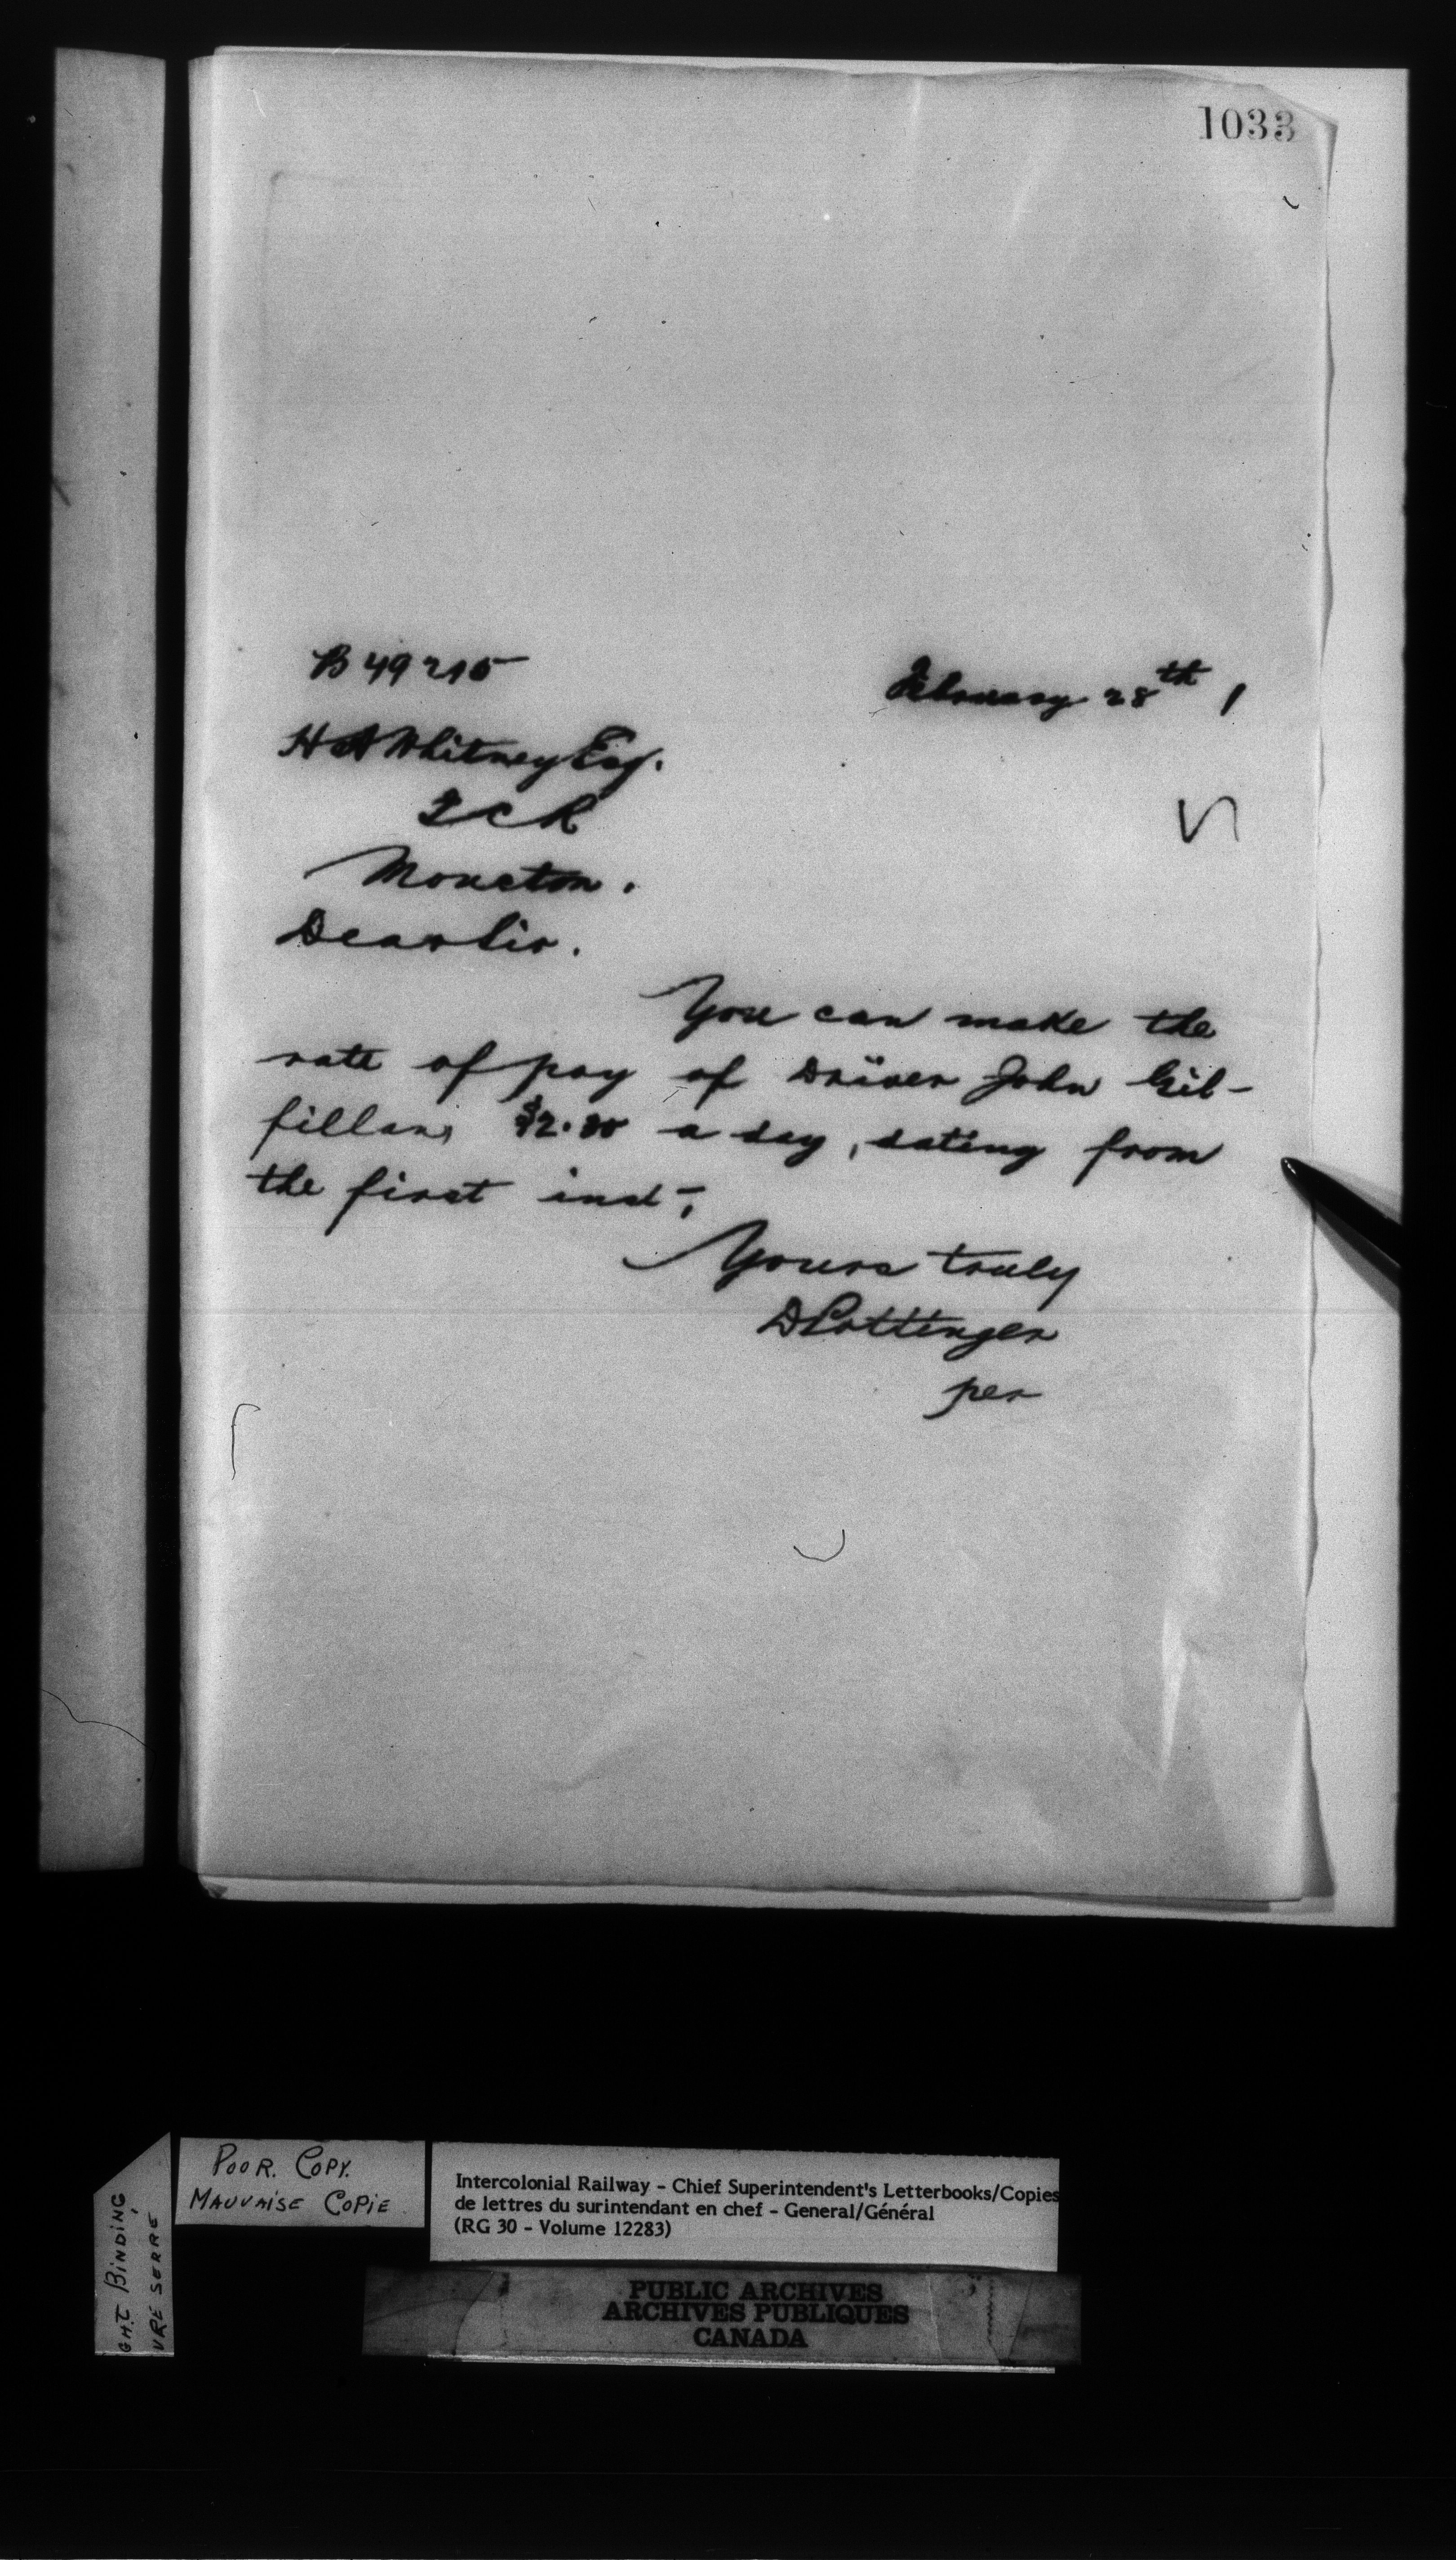 1033
B 49215
February 28th, 1
H A Whitney Esq.
I C R
Moncton.
Dear Sir.
You can make the
rate of pay of Driver John Gil-
fillan, a day, dating from
the first inst,
Yours truly
D Pottinger
per
POOR. COPY.
MAUVAISE COPIE
GHT BINDING
VRE SERRE
Intercolonial Railway - Chief Superintendent's Letterbooks/Copies
de lettres du surintendant en chef - General/Général
(RG 30 - Volume 12283)
PUBLIC ARCHIVES
ARCHIVES PUBLIQUES
CANADA